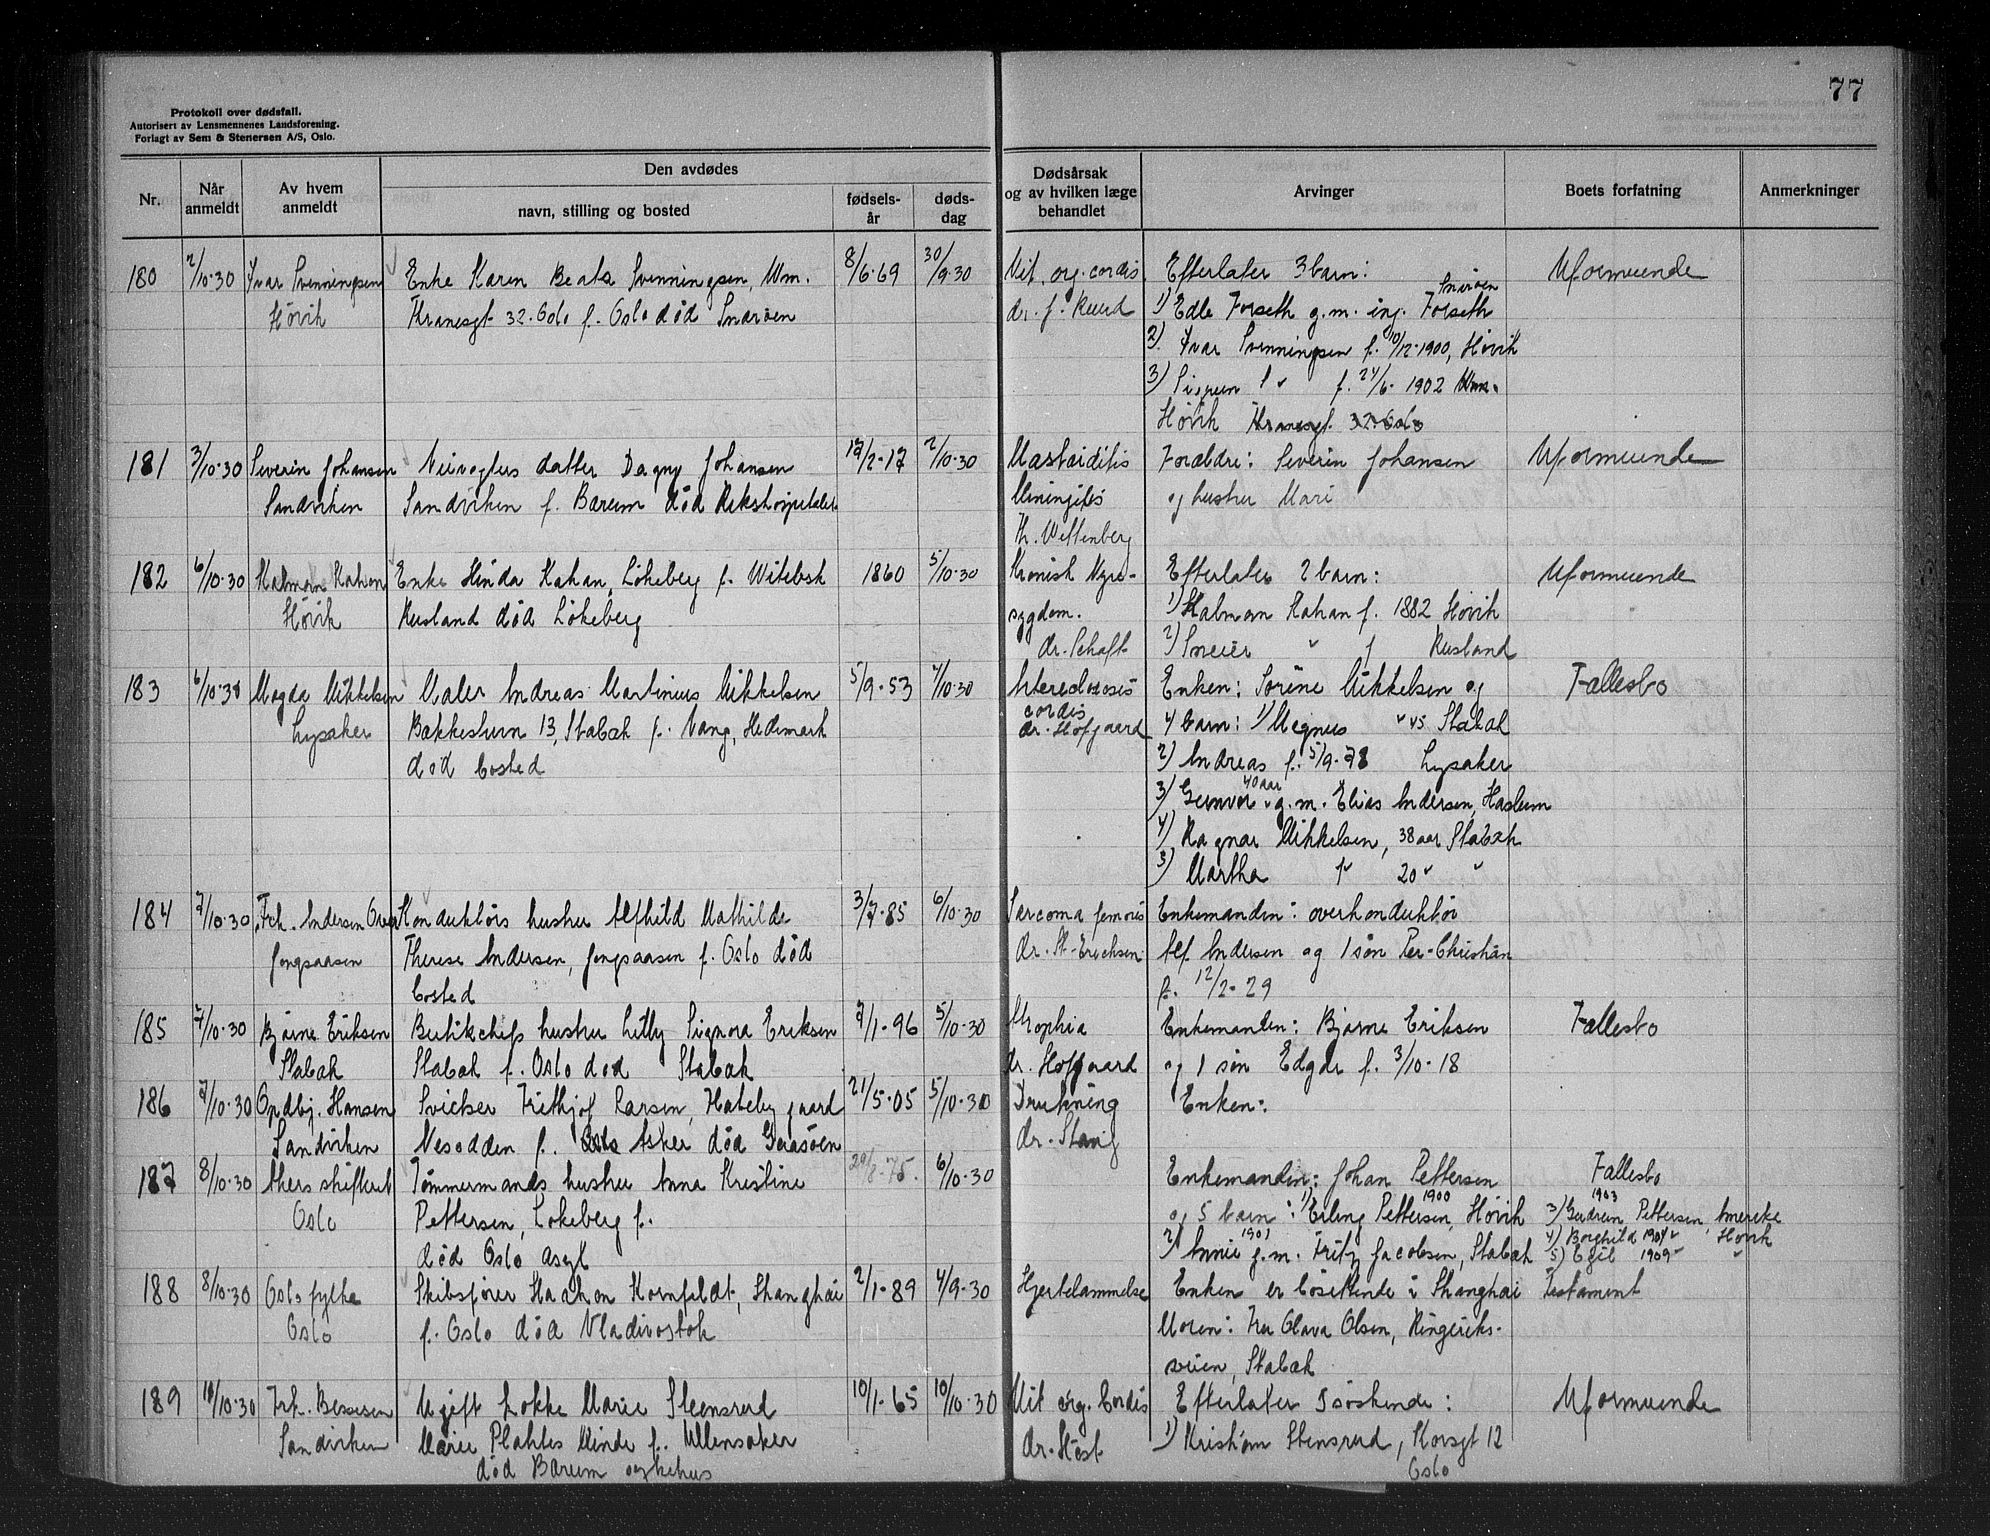 77
Protokoll over dødsfall.
Autorisert av Lensmennenes Landsforening.
Forlagt av Sem & Stenersen A/S, Oslo.
Nr.
Når anmeldt
Av hvem anmeldt
Den avdødes
navn, stilling og bosted
fødsels-år
døds-dag
Dødsårsak og av hvilken læge behandlet
Arvinger
Boets forfatning
Anmerkninger
180 2/10-30 Ivar Svenningsen Enke Karen Beate Svenningsen, Wm. 8/6-69 30/9-30 Vit. org. cordis Efterlater 3 barn: Uformuende
Høvik Thranesgt 32. Oslo f. Oslo død Snarøen dr. f. Ruud 1) Edle Forseth g.m. ing. Forseth Snarøen
2) Ivar Svenningsen f. 10/12-1900, Høvik
3) Signem " f. 24/6-1902 Wm.
Høvik Thranesgt. 32 Oslo
181 3/10-30 Severin Johansen datter Dagny Johansen 17/2-17 2/10-30 Mastoiditis Foreldre: Severin Johansen Uformuende
Sandviken Sandviken f. Bærum død Rikshospitalet Meningitis og hustru Mari
Th. Wettenberg
182 6/10-30 Kalman Kahan Enke Hinda Kahan, Løkeberg f. Witebsk 1860 5/10-30 Kronisk Nyre- Efterlater 2 barn: Uformuende
Høvik Rusland død Løkeberg sygdom. 1) Kalman Kahan f. 1882 Høvik
dr. Schaft 2) Smeier " f Rusland
183 6/10-30 Magda Mikkelsen Maler Andreas Martinius Mikkelsen 5/9-53 4/10-30 cordis Enken: Sørine Mikkelsen og Fallesbo
Lysaker 13, Stabæk f. Vang, Hedemark dr. Hofgaard 4 barn: 1) Magnus " 45 Stabæk
død bosted 2) Andreas f. 5/9-78 Lysaker
3) Gunvor 40 aar g.m. Elias Andersen, Haslum
4) Ragnar Mikkelsen, 38 aar Stabæk
3) Martha " 20 " "
184 7/10-30 Frk. Andersen Konduktørs hustru Alfhild Mathilde 3/7-85 6/10-30 Sarcoma femoris Enkemanden: overkonduktør
Jongsaasen Therese Andersen, Jongsaasen f. Oslo død dr. St-Erichsen Alf Andersen og 1 søn Per-Christian
bosted f. 12/2-29
185 7/10-30 Bjarne Eriksen Butikchefs hustru Lilly Signora Eriksen 7/1-96 5/10-30 Enkemanden: Bjarne Eriksen Fallesbo
Stabæk Stabæk f. Oslo død Stabæk dr. Hoffgaard og 1 søn Edgar f. 3/10-18
186 7/10-30 Opdbj. Hansen Frithjof Larsen, gaard 21/5-05 5/10-30 Drukning Enken:
Sandviken Nesodden f. Asker død dr. Stang
187 8/10-30 Akers skifterett Tømmermands hustru Anna Kristine 29/8-75. 6/10-30 Enkemanden: Johan Pettersen Fallesbo
Oslo Pettersen, Løkeberg f. og 5 barn: 1) Erling Pettersen, 1900 Høvik 3) Gudrun Pettersen, 1903 Amerika
død Oslo asyl 2) Annie 1901 g.m. Fritz Jacobsen, Stabæk 4) Borghild 1907 " Høvik
5) Egil 1909 " "
188 8/10-30 Oslo fylke Skibsfører Haakon Kornfeldt, Shanghai 2/1-89 4/9-30 Hjertelammelse Enken er bosittende i Shanghai Testament
Oslo f. Oslo død Vladivostok Moren: Fru Olava Olsen, Ringeriks-
veien, Stabæk
189 11/10-30 Frk. Bessesen Ugift Lokke Marie Steensrud 10/1-65 10/10-30 Vit. org. Cordis Efterlater søskende: Uformuende
Sandviken Marie Plahtes Minde f. Ullensaker dr. Høst 1) Kristian Stensrud, Korsgt 12
død Bærum sykehus Oslo